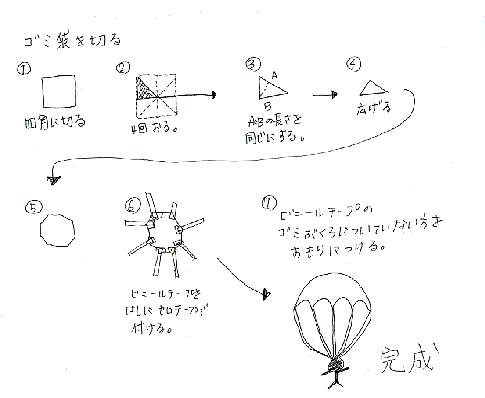 ゴミ袋を切る
①
四角に切る
②
4回おる。
③
A
B
ABの長さを
同じにする。
④
広げる
⑤
⑥
ビニールテープを
はしにセロテープで
付ける。
⑦
ビニールテープの
ゴミぶくろについていない方を
おもりにつける。
完成